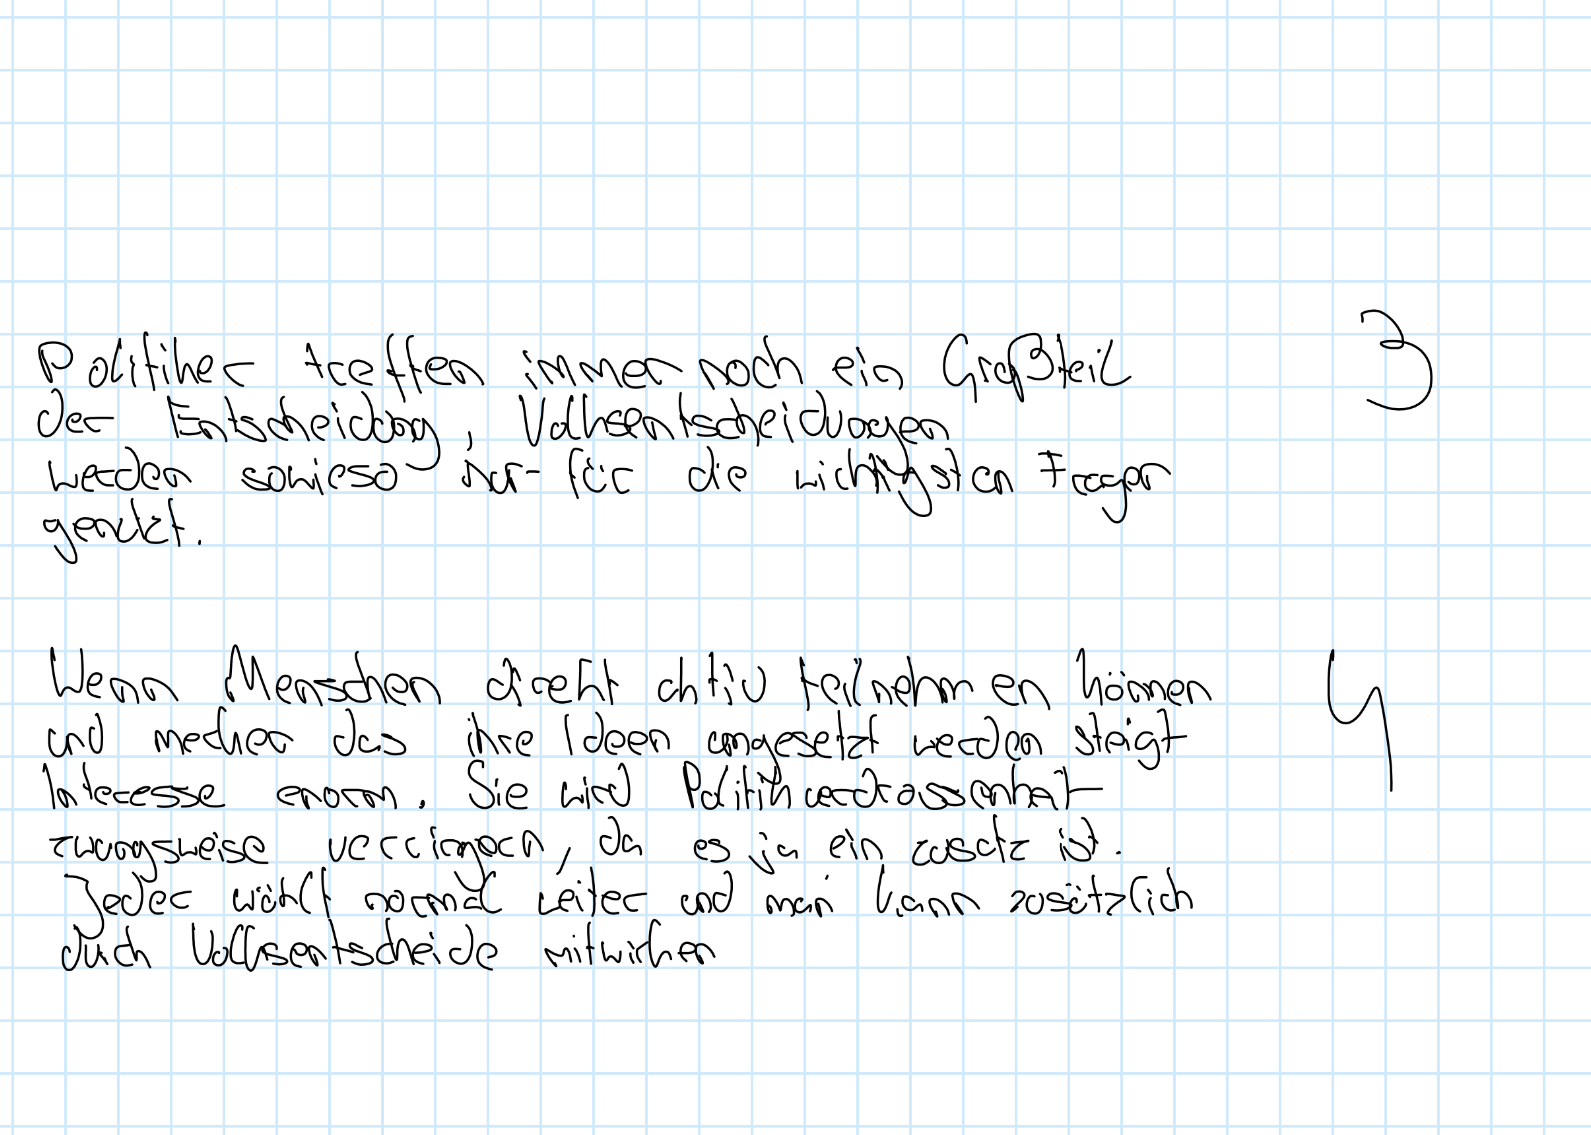 Politiker treffen immer noch ein Großteil 3
der Entscheidung, Volksentscheidungen
werden sowieso nur für die wichtigsten Fragen
genutzt.
Wenn Menschen direkt aktiv teilnehmen können 4
und merken das ihre Ideen umgesetzt werden steigt
Interesse enorm. Sie wird Politikverdrossenheit
zwangsweise verringern, da es ja ein zusatz ist.
Jeder wählt normal weiter und man kann zusätzlich
duch Volksentscheide mitwirken